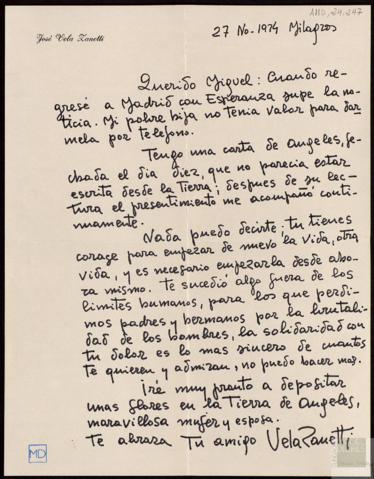 AMD, 24, 247
José Vela Zanetti
27 No-1974 Milagros
Querido Miguel: Cuando re-
gresé a Madrid con Esperanza supe la no-
ticia. Mi pobre hija no tenia valor para dar-
mela por telefono.
Tengo una carta de Angeles, fe-
chada el dia diez, que no parecia estar
escrita desde la Tierra; despues de su lec-
tura el presentimiento me acompañó conti-
nuamente.
Nada puedo decirte; tu tienes
coraje para empezar de nuevo la vida, otra
vida, y es necesario empezarla desde aho-
ra mismo. Te sucedió algo fuera de los
limites humanos, para los que perdi-
mos padres y hermanos por la brutali-
dad de los hombres, la solidaridad con
tu dolor es lo mas sincero de cuantos
te quieren y admiran, no puedo hacer mas.
Iré muy pronto a depositar
unas flores en la Tierra de Angeles,
maravillosa mujer y esposa.
Te abraza Tu amigo Vela Zanetti
MD